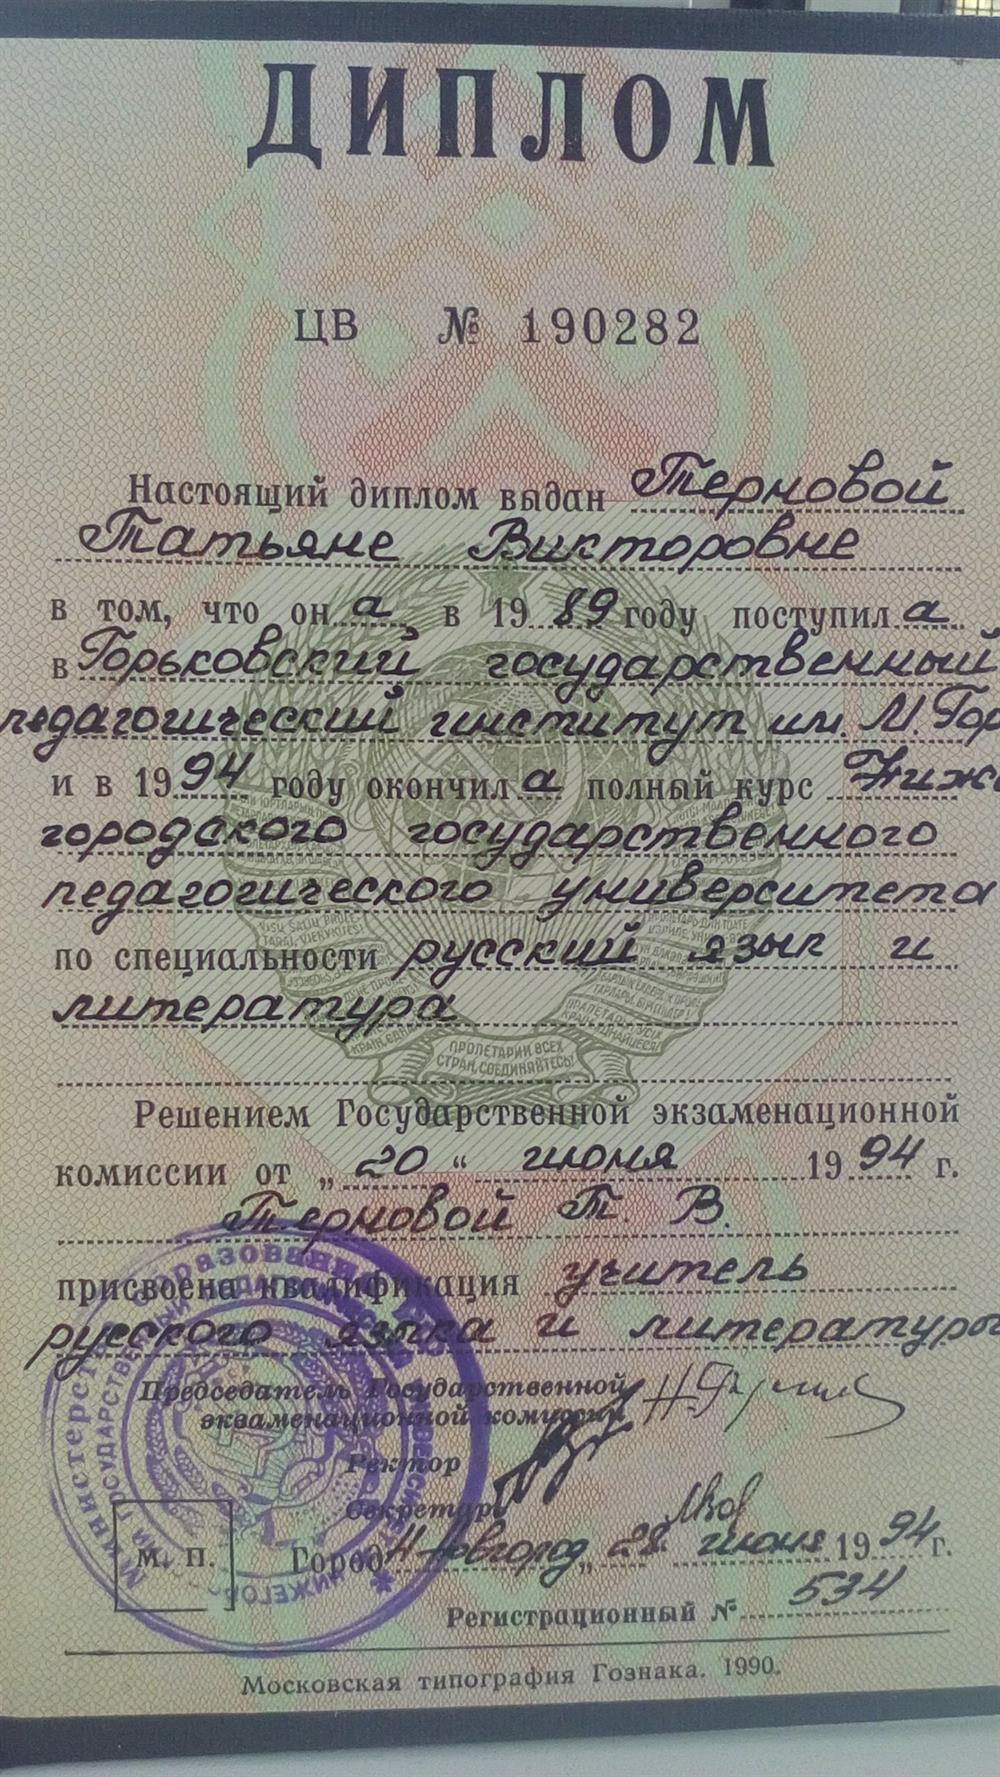 ДИПЛОМ
ЦВ № 190282
Настоящий диплом выдан Терновой
Татьяне Викторовне
в том, что он а в 19 89 году поступил а
в Горьковский государственный
педагогический институт им. М. Гор
и в 19 94 году окончил а полный курс Ниже
городского государственного
педагогического университета
по специальности русский язык и
литература
ПРОЛЕТАРИИ ВСЕХ
СТРАН, СОЕДИНЯЙТЕСЬ!
Решением Государственной экзаменационной
комиссии от „ 20 “ июня 19 94 г.
Терновой Т. В.
присвоена квалификация учитель
русского языка и литературы
Председатель Государственной
экзаменационной комиссии
Ректор
Секретарь
М. П.
Город Н-Новгород „ 28 июня 19 94 г.
Регистрационный № 534
Московская типография Гознака. 1990.